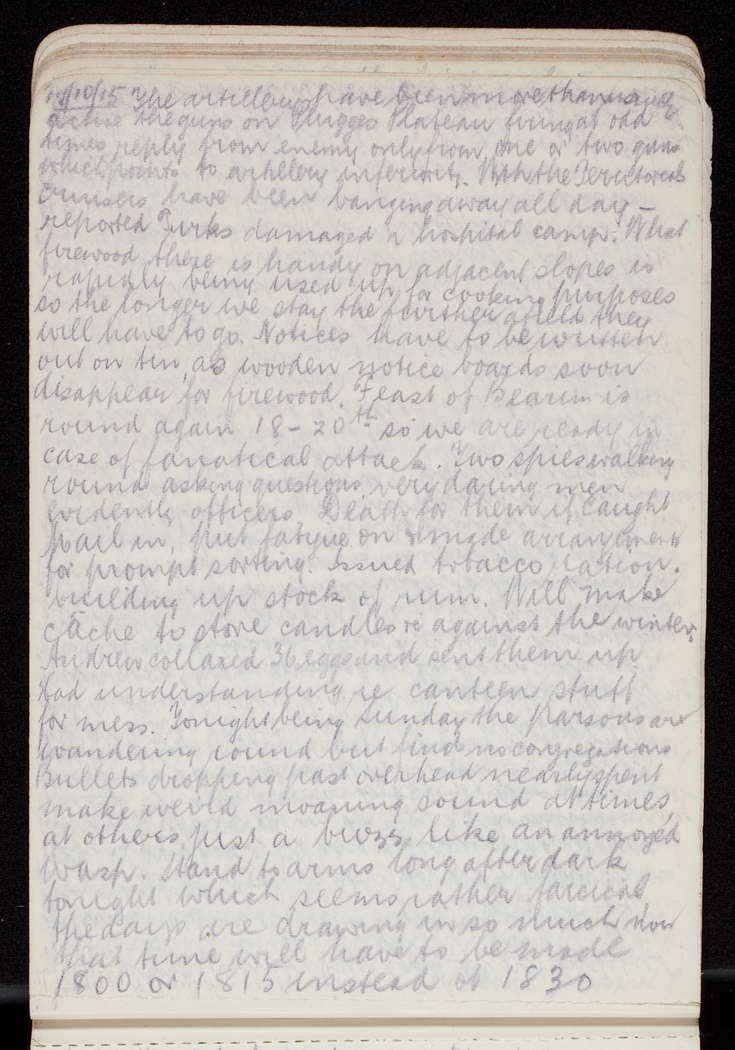 17/10/15 The artillery have been more than usually
active the guns on Plugges Plateau firing at odd
times reply from enemy only from one or two guns
which points to artillery inferiority. Both the
cruisers have been banging away all day –
reported Turks damaged a hospital camp. What
firewood there is handy on adjacent slopes is
rapidly being used up for cooking purposes
so the longer we stay the further afield they
will have to go. Notices have to be written
out on tin, as wooden notice boards soon
disappear for firewood. Feast of Bearim is
round again 18 – 20th so we are ready in
case of fanatical attack. Two spies walking
round asking questions, very daring men
evidently officers Death for them if caught
Mail in, put fatigue on & made arrangements
for prompt sorting. Issued tobacco ration.
building up stock of rum. Will make
câche to store candles &c against the winter.
Andrew collared 36 eggs and sent them up
had understanding re canteen stuff
for mess. Tonight being Sunday the Parsons are
wandering round but find no congregations
Bullets dropping past overhead nearly spent
make weird moaning sound at times
at others just a buzz like an annoyed
wasp. Stand to arms long after dark
tonight which seems rather farcical
the days are drawing in so much now
that time will have to be made
1800 or 1815 instead of 1830